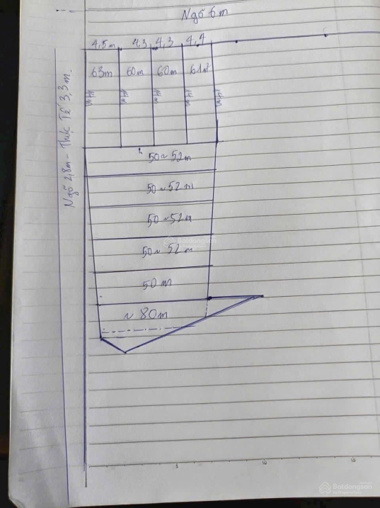 Ngõ 6m
4,5m 4,3 4,3 4,4
63m 60m 60m 61m²
Ngõ 2,8m - Thực Tế 3,3m.
50~52m
50~52m
50~52m
50~52m
50m
~80m
Batdongsan